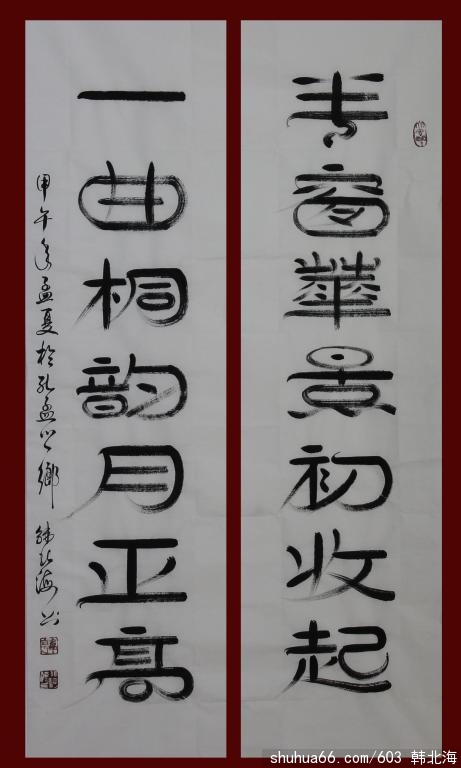 半窗華景初收起
一曲桐韵月正高
甲午年孟夏於孔孟之鄉 韓北海书
shuhua66.com/603 韩北海